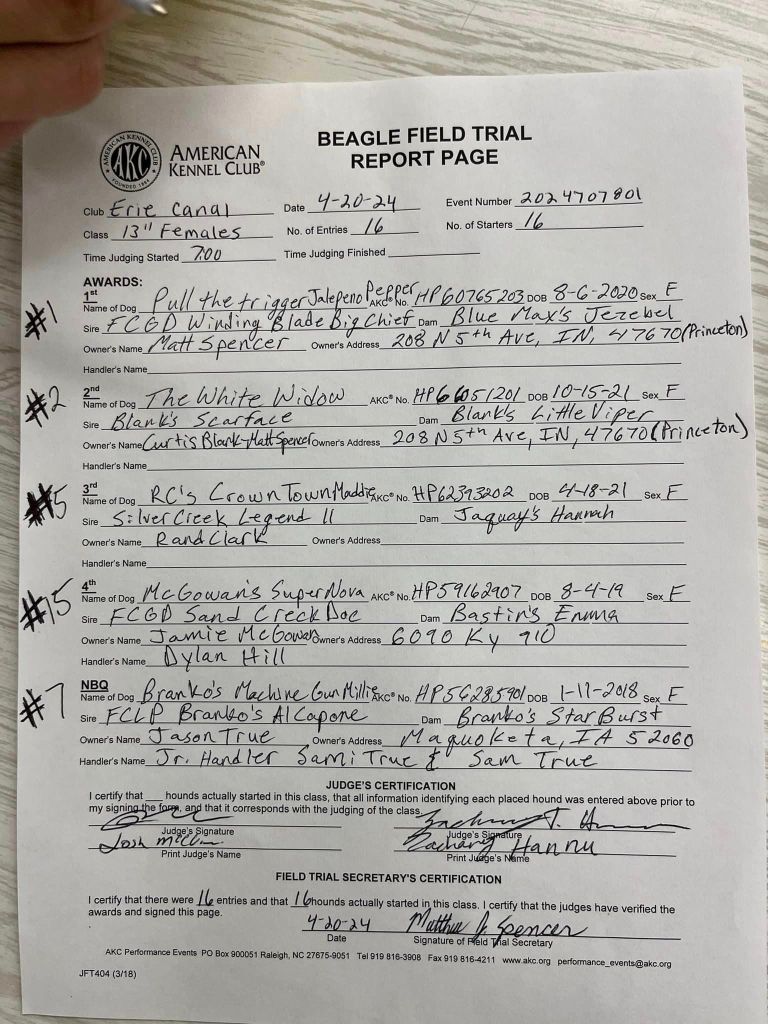 AMERICAN KENNEL CLUB
AKC
FOUNDED 1884
AMERICAN
KENNEL CLUB®
BEAGLE FIELD TRIAL
REPORT PAGE
Club Erie Canal Date 4-20-24 Event Number 2024707801
Class 13" Females No. of Entries 16 No. of Starters 16
Time Judging Started 7:00 Time Judging Finished
AWARDS:
#1
1st
Name of Dog Pull the trigger Jalepeno Pepper AKC® No. HP60765203 DOB 8-6-2020 Sex F
Sire FCGD Winding Blade Big Chief Dam Blue Max's Jezebel
Owner's Name Matt Spencer Owner's Address 208 N 5th Ave, IN, 47670 (Princeton)
Handler's Name
#2
2nd
Name of Dog The White Widow AKC® No. HP66051201 DOB 10-15-21 Sex F
Sire Blank's Scarface Dam Blank's Little Viper
Owner's Name Curtis Blank-Matt Spencer Owner's Address 208 N 5th Ave, IN, 47670 (Princeton)
Handler's Name
#5
3rd
Name of Dog RC's Crown Town Maddie AKC® No. HP62393202 DOB 4-18-21 Sex F
Sire Silver Creek Legend II Dam Jaquay's Hannah
Owner's Name Rand Clark Owner's Address
Handler's Name
#15
4th
Name of Dog McGowan's Super Nova AKC® No. HP59162907 DOB 8-4-19 Sex F
Sire FCGD Sand Creek Doc Dam Bastin's Emma
Owner's Name Jamie McGowan Owner's Address 6090 Ky 910
Handler's Name Dylan Hill
#7
NBQ
Name of Dog Branko's Machine Gun Millie AKC® No. HP56285901 DOB 1-11-2018 Sex F
Sire FCLP Branko's Al Capone Dam Branko's StarBurst
Owner's Name Jason True Owner's Address Maquoketa, IA 52060
Handler's Name Jr. Handler Sami True & Sam True
JUDGE'S CERTIFICATION
I certify that ___ hounds actually started in this class, that all information identifying each placed hound was entered above prior to
my signing the form, and that it corresponds with the judging of the class.
Judge's Signature Judge's Signature
Josh Zachary Hannu
Print Judge's Name Print Judge's Name
FIELD TRIAL SECRETARY'S CERTIFICATION
I certify that there were 16 entries and that 16 hounds actually started in this class. I certify that the judges have verified the
awards and signed this page.
4-20-24 Matthew J. Spencer
Date Signature of Field Trial Secretary
AKC Performance Events PO Box 900051 Raleigh, NC 27675-9051 Tel 919 816-3908 Fax 919 816-4211 www.akc.org performance_events@akc.org
JFT404 (3/18)